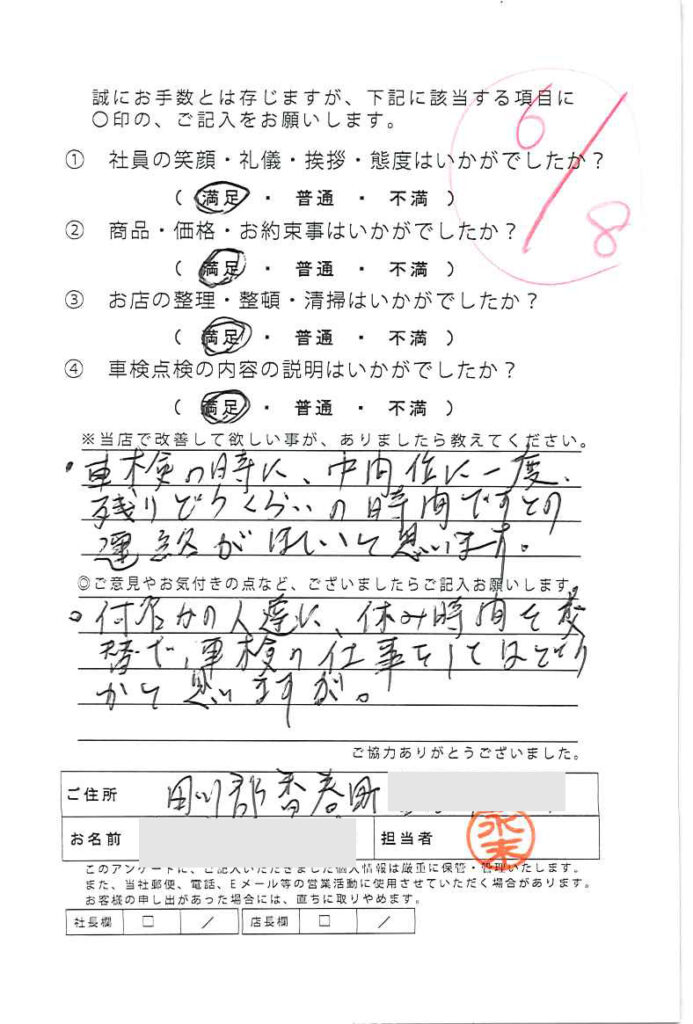 誠にお手数とは存じますが、下記に該当する項目に
〇印の、ご記入をお願いします。
6/8
① 社員の笑顔・礼儀・挨拶・態度はいかがでしたか？
（ 満足 ・ 普通 ・ 不満 ）
② 商品・価格・お約束事はいかがでしたか？
（ 満足 ・ 普通 ・ 不満 ）
③ お店の整理・整頓・清掃はいかがでしたか？
（ 満足 ・ 普通 ・ 不満 ）
④ 車検点検の内容の説明はいかがでしたか？
（ 満足 ・ 普通 ・ 不満 ）
※当店で改善して欲しい事が、ありましたら教えてください。
・車検の時に、中間位に一度、
残りどらくらいの時間ですとの
連絡がほしいと思います。
◎ご意見やお気付きの点など、ございましたらご記入お願いします。
。何名かの人達に、休み時間を交
替で、車検の仕事をしてはどう
かと思いますが。
ご協力ありがとうございました。
ご住所 田川郡香春町
お名前 担当者 永末
このアンケートに、ご記入いただきました個人情報は厳重に保管・管理いたします。
また、当社郵便、電話、Eメール等の営業活動に使用させていただく場合があります。
お客様の申し出があった場合には、直ちに取りやめます。
社長欄 □ ／ 店長欄 □ ／